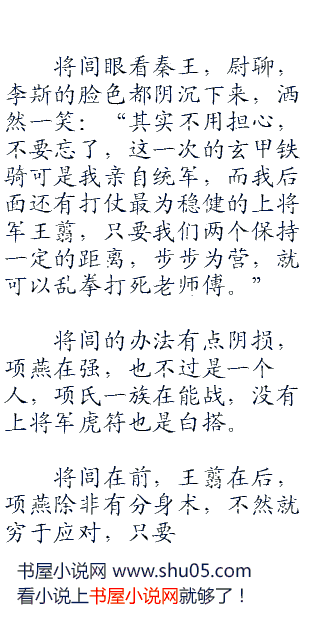 将闾眼看秦王，尉聊，
李斯的脸色都阴沉下来，洒
然一笑：“其实不用担心，
不要忘了，这一次的玄甲铁
骑可是我亲自统军，而我后
面还有打仗最为稳健的上将
军王翦，只要我们两个保持
一定的距离，步步为营，就
可以乱拳打死老师傅。”
将闾的办法有点阴损，
项燕在强，也不过是一个
人，项氏一族在能战，没有
上将军虎符也是白搭。
将闾在前，王翦在后，
项燕除非有分身术，不然就
穷于应对，只要
书屋小说网 www.shu05.com
看小说上书屋小说网就够了！